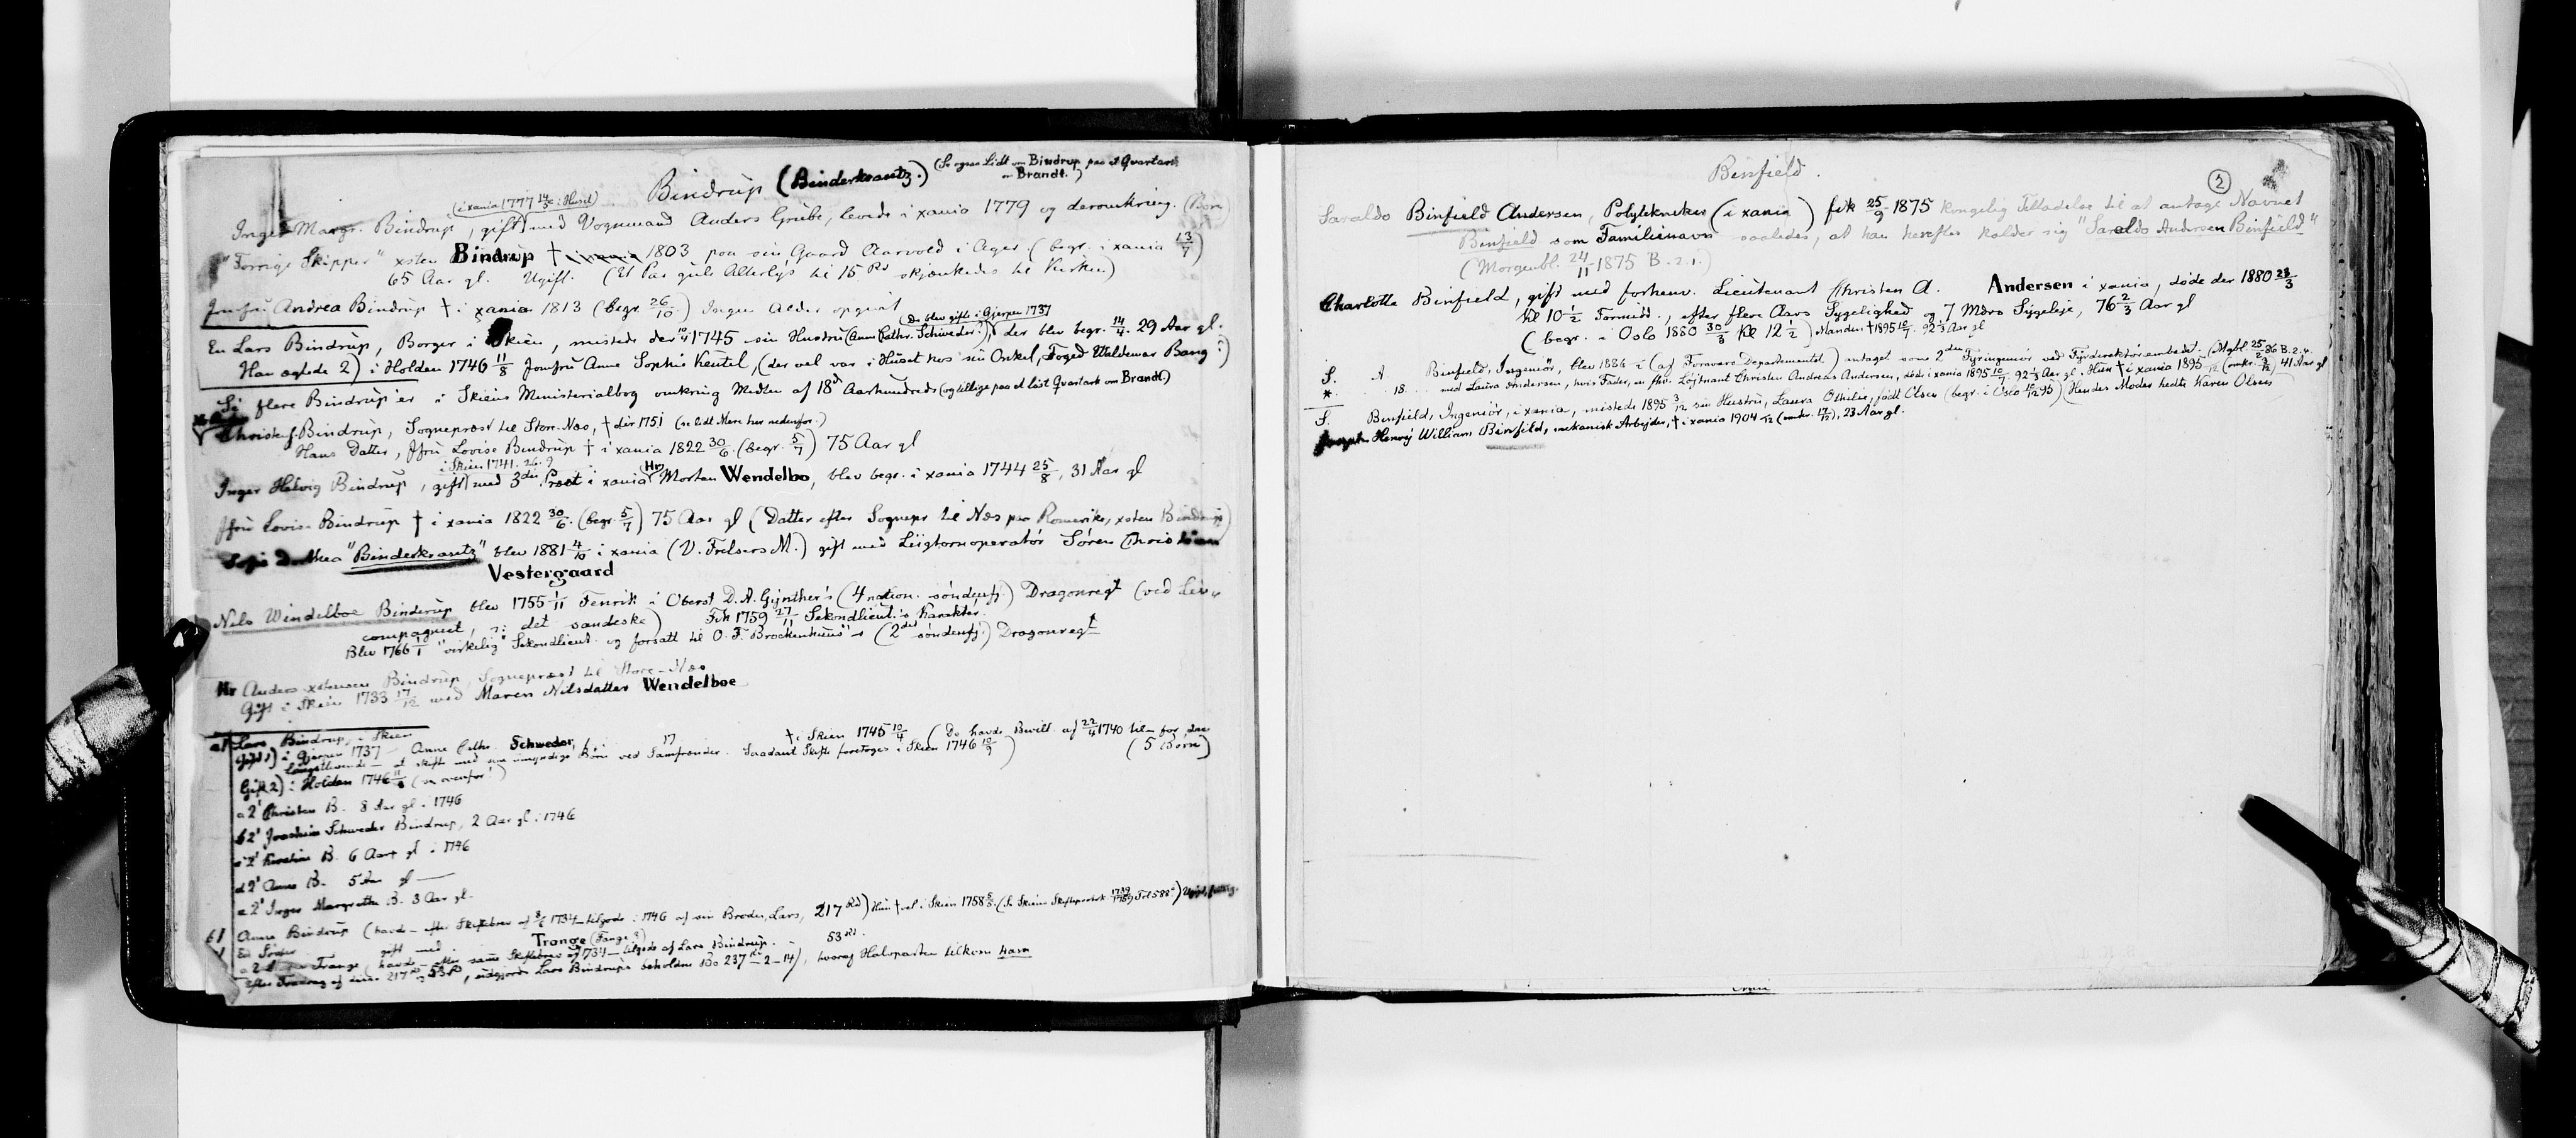 Bindrup (Binderkrantz.) (Se ogsaa Lidt om Bindrup paa et Qvartark
om Brandt.)
(i xania 1777 14/3 i Huset)
Inger Margr. Bindrup, gift med Vognmand Anders Grube, levede i xania 1779 og deromkring. (Børn
"Forrige Skipper" xsten Bindrup † i xania 1803 paa sin Gaard Aarvold i Ager (begr. i xania 13/7)
65 Aar gl. Ugift. (Et Par gule Alterlys til 15 Rd skjænkedes til Kirken)
Jomfru Andrea Bindrup † i xania 1813 (begr. 26/10) Ingen Alder opgivet
(De blev gifte i Gjerpen 1737
En Lars Bindrup, Borger i Skien, mistede der 10/4 1745 sin Hustru (Anne Cathr. Schweder), der blev begr. 14/4. 29 Aar gl.
Han ægtede 2) i Holden 1746 11/8 Jomfru Anne Sophie Keutel, (der vel var i Huset hos sin Onkel, Foged Waldemar Bang.)
Se flere Bindrup'er i Skiens Ministerialbog omkring Midten af 18d Aarhundrede (og tillige paa et løst Qvartark om Brandt)
Christen Bindrup, Sogneprest til Store-Næs, † der 1751 (se lidt Mere her nedenfor.)
Hans Datter, Jfru Lovise Bindrup † i xania 1822 30/6 (begr. 5/7) 75 Aar gl
i Skien 1741. 26. 9
Inger Helvig Bindrup, gift med 3die Præst i xania Hr Morten Wendelbo, blev begr. i xania 1744 25/8, 31 Aar gl
Jfru Lovise Bindrup † i xania 1822 30/6. (begr. 5/7) 75 Aar gl (Datter efter Sognepr til Næs paa Romerike, xsten Bindrup)
Sofie Dorthea "Binderkrantz" blev 1881 4/10 i xania (V. Frelsers M.) gift med Liigtornoperatør Søren Christian
Vestergaard
Nils Windelboe Binderup blev 1755 1/11 Fenrik i Oberst D. A. Gynther's (4 nation. søndenfj.) Dragonregt (ved Liv-
compagniet, det sandeske) Fik 1759 27/11 Sekondlieut.s Karakter.
Blev 1766 1/1 virkelig Sekondlieut. og forsatt til O. F. Brockenhuus's (2det søndenfj.) Dragonregt
Hr Anders xstensen Bindrup, Sogneprest til Store-Næs
Gift i Skien 1733 17/12 med Maren Nilsdatter Wendelboe
a1 Lars Bindrup, i Skien
Gift 1) i Gjerpen 1737 Anne Cathr. Schweder, f. i 17 † i Skien 1745 10/4 (De havde Bevill. af 22/4 1740 til for den
Længstlevende at skifte med sine umyndige Børn ved Samfrænder. Saadant Skifte foretoges i Skien 1746 10/9) (5 Børn)
Gift 2) i Holden 1746 11/8 (se ovenfor)
a2' Christen B. 8 Aar gl. i 1746
b2' Joachim Schweder Bindrup, 2 Aar gl. i 1746
c2' Kirstine B. 6 Aar gl i 1746
d2' Anne B. 5 Aar gl
e2' Inger Margrethe B. 3 Aar gl.
b1 Anne Bindrup (havde efter Skiftebrev af 8/6 1734 tilgode i 1746 af sin Broder, Lars, 217 Rd) Hun † vel i Skien 1758 (Se Skiens Skifteprotok. Fol 588)
En Søster gift med Trange (Fange?) 53 Rd.
a2 Trange (havde efter samme Skiftebrev af 1734 tilgode af Lars Bindrup.
Efter Fradrag af disse 217 Rd og 53 Rd, udgjorde Lars Bindrups beholdne Bo 237 Rd - 2 - 14), hvoraf Halvparten tilkom ham
Binfield.
2
Saraldo Binfield Andersen, Polytekniker (i xania) fik 25/9 1875 kongelig Tilladelse til at antage Navnet
Binfield som Familienavn saaledes, at han herefter kalder sig "Saraldo Andersen Binfield"
(Morgenbl. 24/11 1875 B. 2.1.)
Charlotte Binfield, gift med forhenv. Lieutenant Christen A. Andersen i xania, døde der 1880 23/3
Kl 10 1/2 Formidd., efter flere Aars Sygelighed og 7 Mdrs Sygeleje, 76 2/3 Aar gl
(begr. i Oslo 1880 30/3 Kl 12 1/2) Manden † 1895 10/7. 92 1/3 Aar gl
S. A Binfield, Ingeniør, blev 1886 i (af Forsvars Departementet) antaget som 2den Fyringeniør ved Fyrdirektørembedet (Mgbl 25/2 86 B. 2.
* 18 med Laura Andersen, hvis Fader, en fhv. Løjtnant Christen Andreas Andersen, døde i xania 1895 10/7 92 1/3 Aar gl. Hun † i xania 1895 /12 (omkr. 3/12) 41 Aar gl
S. Binfield, Ingeniør, i xania, mistede 1895 3/12 sin Hustru, Laura Othilie, født Olsen (begr. i Oslo 10/12 95) Hendes Moder hedte Karen Olsen
Joseph Henry William Binfield, mekanisk Arbejder, † i xania 1904 /12 (omkr. 17/12), 23 Aar gl.